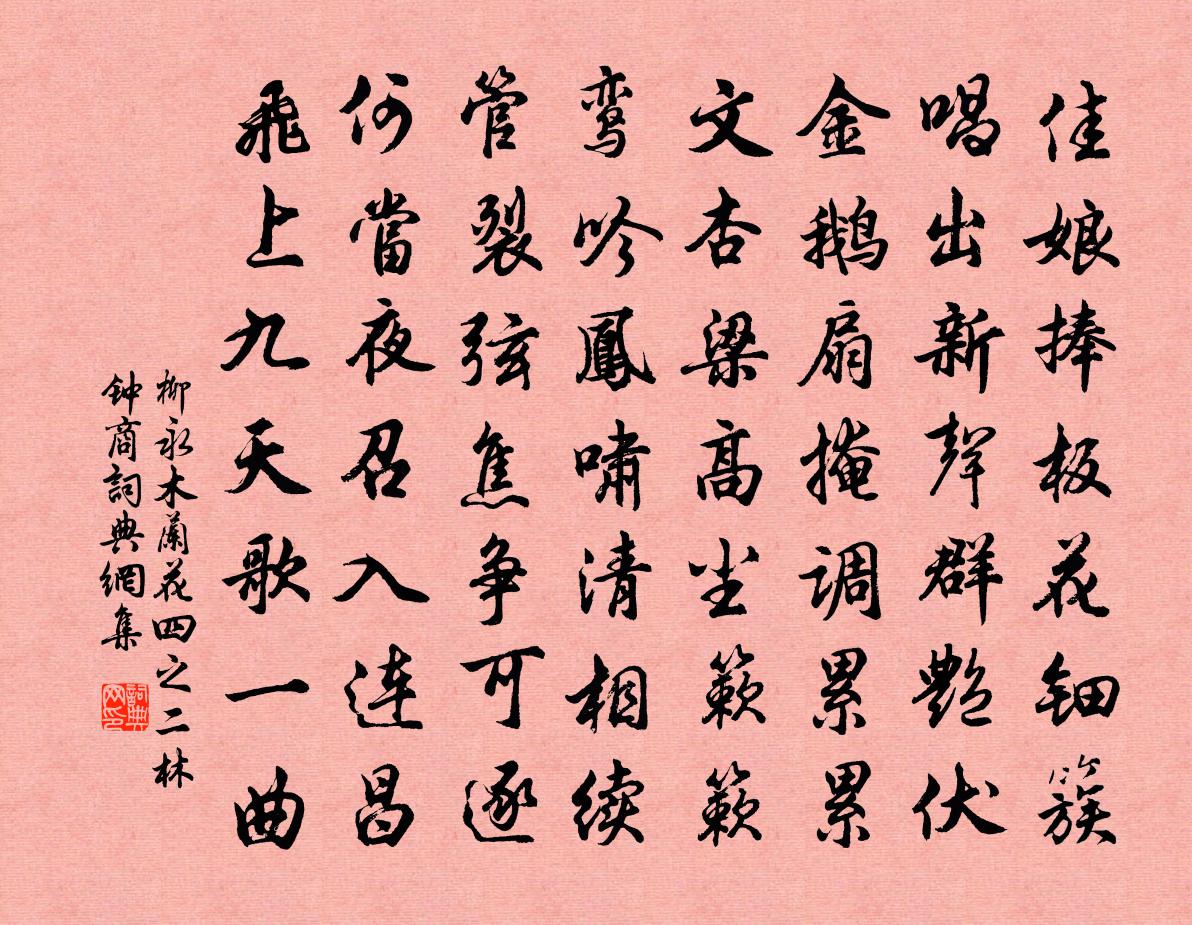 佳娘捧板花钿簇
唱出新聲群艷伏
金鹅扇掩調累累
文杏梁高尘簌簌
鸾吟鳳嘯清相续
管裂弦焦争可逐
何當夜召入连昌
飛上九天歌一曲
柳永木蘭花四之二林
钟商詞典網集
詞典网印